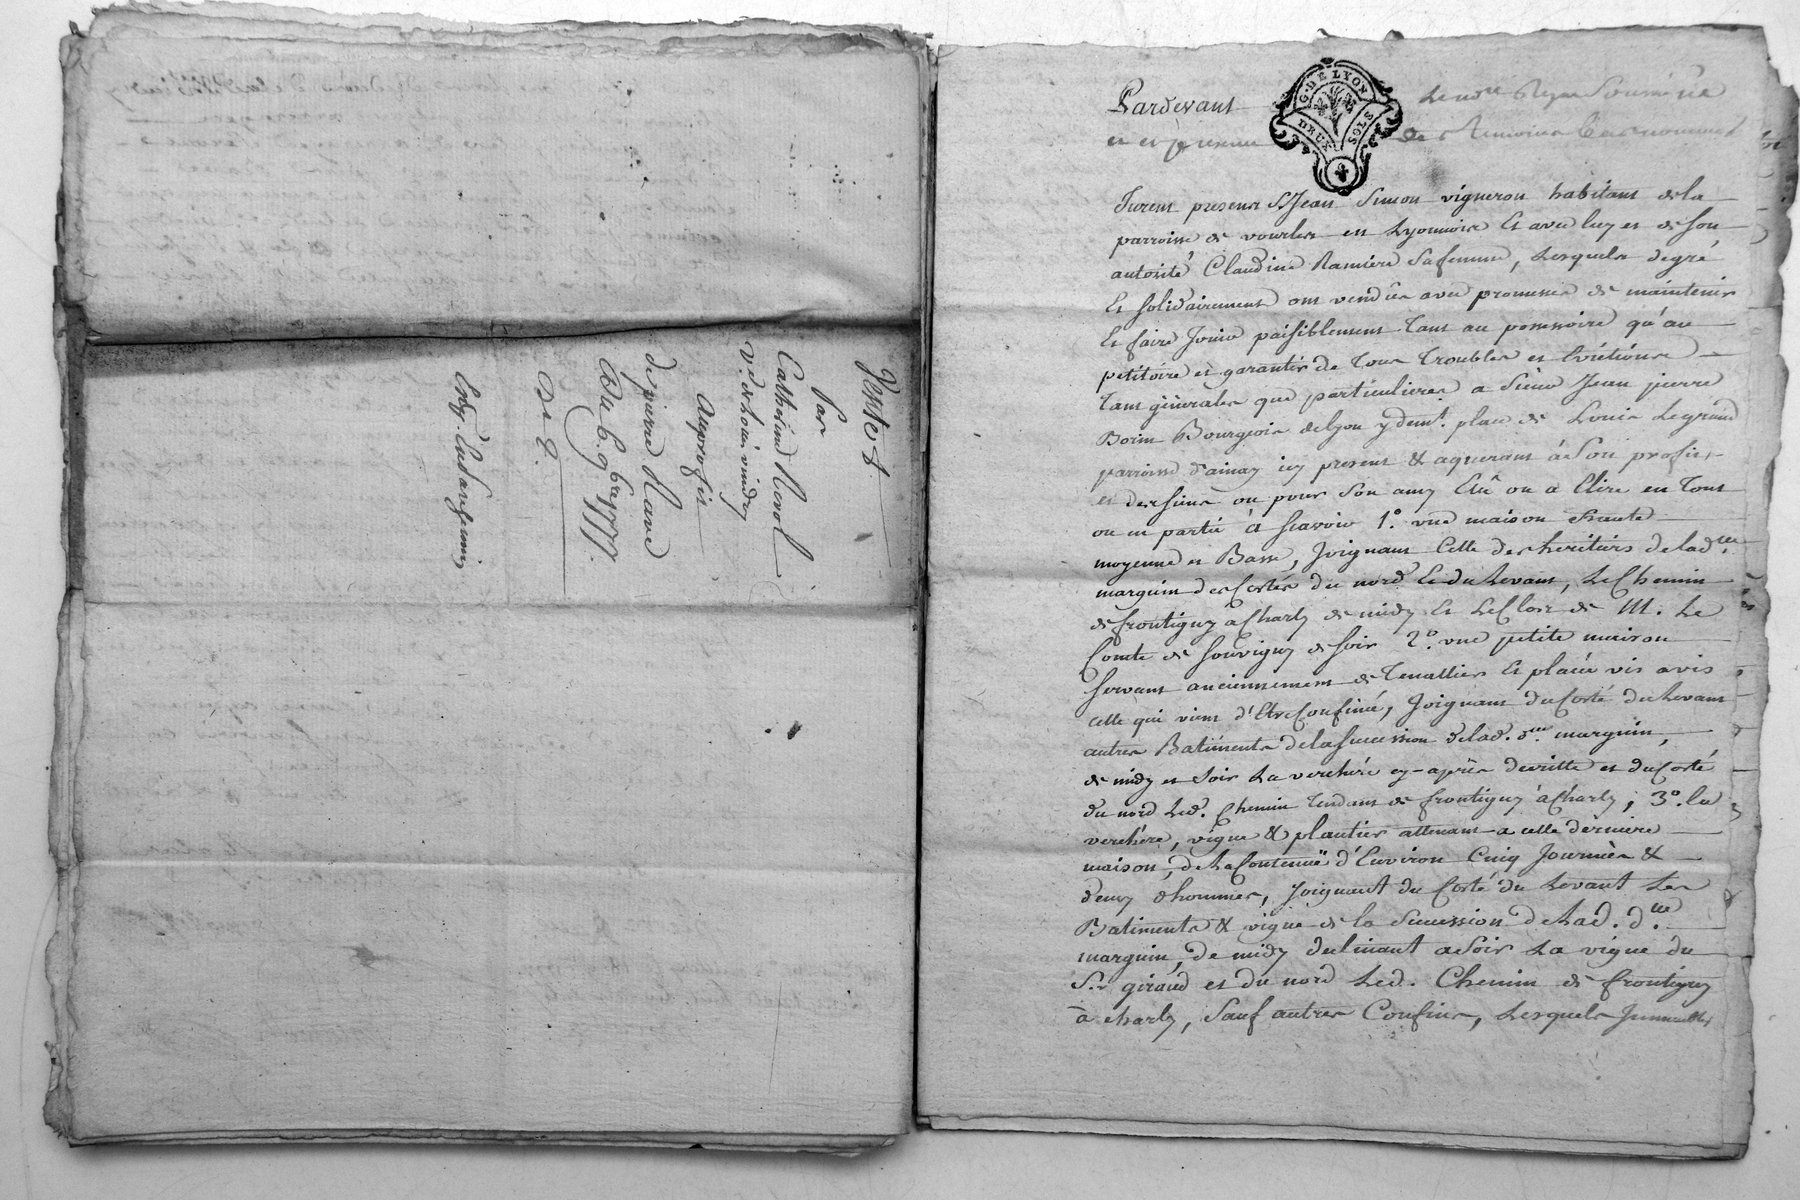 Vente
par
Catherine Revol
Ve. de Louis
Au profit
de pierre Rave
Du 6. 9bre 1777.
De L.
G. DE LYON
DEUX SOLS
Pardevant Le no.re Royal Soussigné
et en presence de
furent presents Sr Jean Simon vigneron habitant de la
parroisse de vourles en Lyonnois Et avec luy et de son
autorité Claudine Ramiere sa femme, Lesquels de gré
Et solidairement ont vendûs avec promesse de maintenir
Et faire Jouir paisiblement tant au possessoire qu'au
petitoire et garantir de tous troubles et Evictions
tant génerales que particulieres a Sieur Jean pierre
Boim Bourgeois de Lyon y demt. place de Louis Le grand
parroisse d'ainay icy present & aquerant à son profit
et des siens ou pour son amy Elû ou a Elire en tout
ou en partie à scavoir 1.° une maison haute
moyenne et Basse, Joignant Celle des heritiers de lad.lle
marguin des Cotés du nord Et du Levant, Le Chemin
de frontigny à Charly de midy Et Le Clos de M. Le
Comte de Souvigny de soir 2.° une petite maison
servant anciennement de Tenaillier Et placée vis a vis
celle qui vient d'Etre Confinée, Joignant du Costé du Levant
autres Batiments de la succession de lad. d.lle marguin,
de midy et soir La verchere cy-après décritte et du Costé
du nord Led. Chemin tendant de frontigny à Charly; 3.° la
verchére, vigne & plantier attenant a cette derniere
maison, de La Contenuë d'Environ Cinq Journées &
demy d'hommes, Joignant du Costé du Levant Les
Batiments & vigne de la succession de Lad. d.lle
marguin, de midy declinant a soir La vigne du
Sr. giraud et du nord Led. Chemin de frontigny
à charly, Sauf autres Confins, Lesquels Immeubles